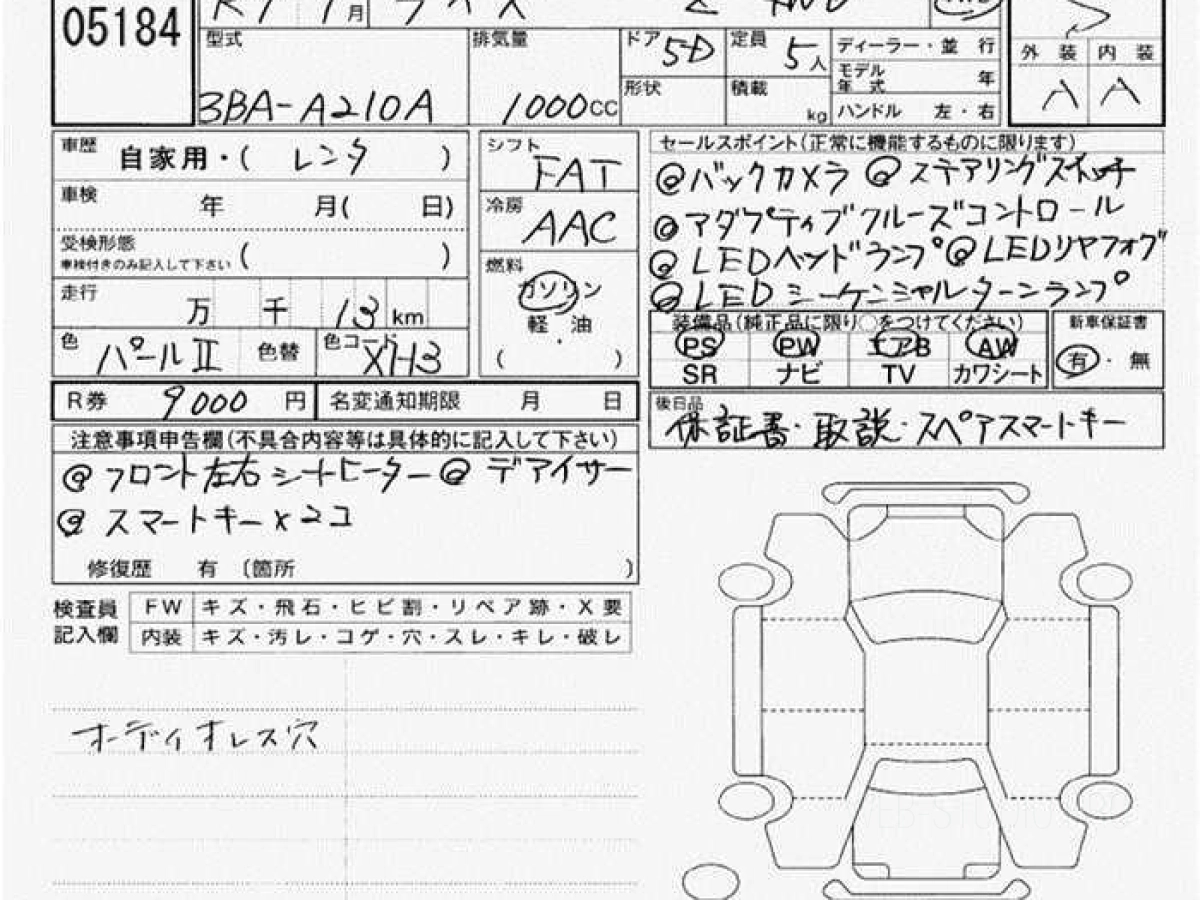 05184
R7 1月 ライズ Z 4WD
型式 3BA-A210A
排気量 1000cc
ドア 5D
定員 5人
形状
積載 kg
ディーラー・並行
モデル年式 年
ハンドル 左・右
S
外装 内装
A A
車歴 自家用・( レンタ )
車検 年 月( 日)
受検形態
車検付きのみ記入して下さい ( )
走行 万 千 13 km
色 パールII 色替 色コード XH3
シフト FAT
冷房 AAC
燃料
ガソリン
軽油
( )
セールスポイント(正常に機能するものに限ります)
@バックカメラ @ステアリングスイッチ
@アダプティブクルーズコントロール
@LEDヘッドランプ @LEDリヤフォグ
@LEDシーケンシャルターンランプ
装備品(純正品に限り○をつけてください)
PS PW エアB AW
SR ナビ TV カワシート
新車保証書
有・無
R券 9000 円 名変通知期限 月 日
後日品
保証書・取説・スペアスマートキー
注意事項申告欄(不具合内容等は具体的に記入して下さい)
@フロント左右シートヒーター @デアイサー
@スマートキー×2コ
修復歴 有 〔箇所 〕
検査員記入欄
FW キズ・飛石・ヒビ割・リペア跡・X要
内装 キズ・汚レ・コゲ・穴・スレ・キレ・破レ
オーディオレス穴